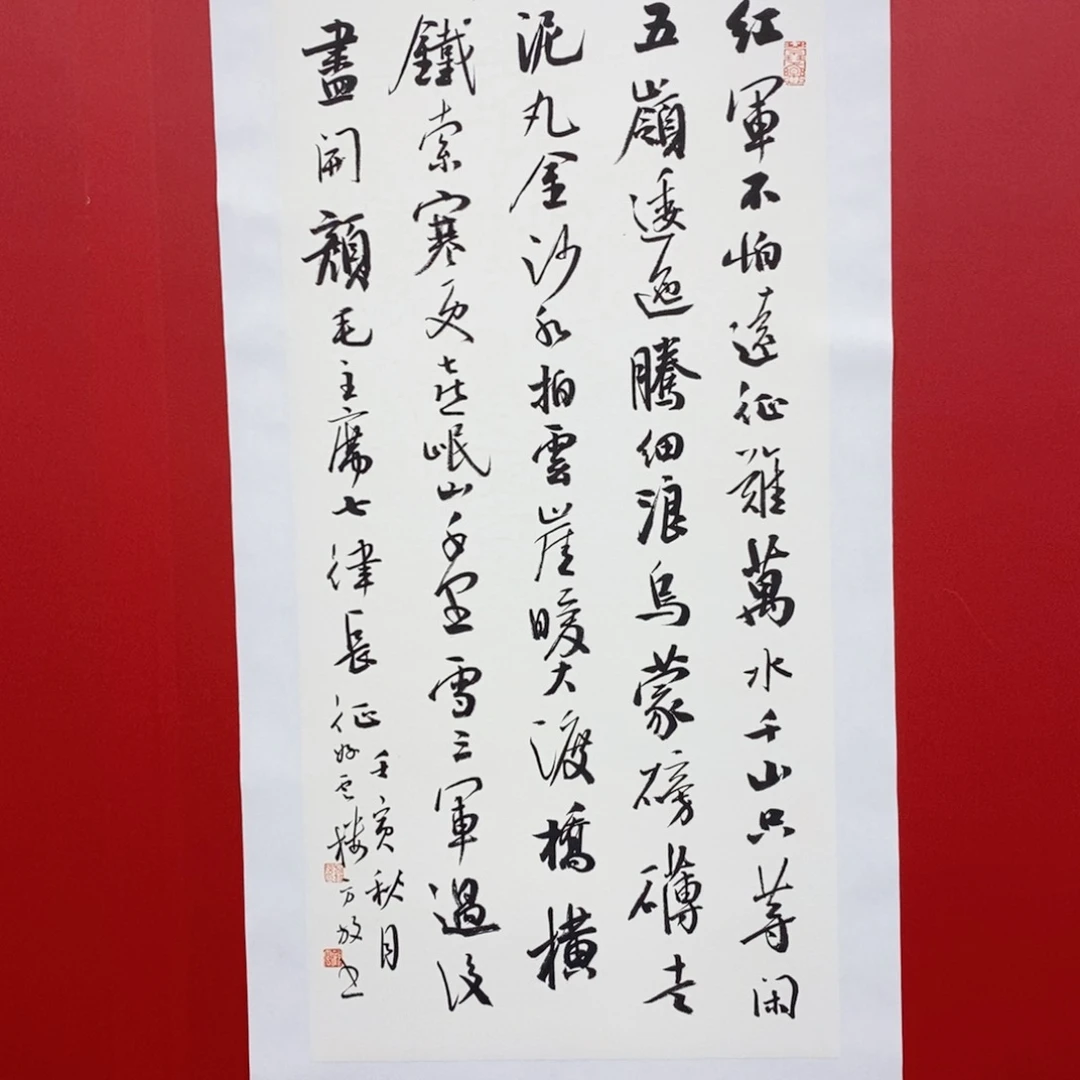 红軍不怕遠征難萬水千山只等閑
五嶺逶迤騰細浪烏蒙磅礴走
泥丸金沙水拍雲崖暖大渡橋橫
鐵索寒更喜岷山千里雪三軍過後
盡開顏毛主席七律長征
壬寅秋月
好云楼方放书